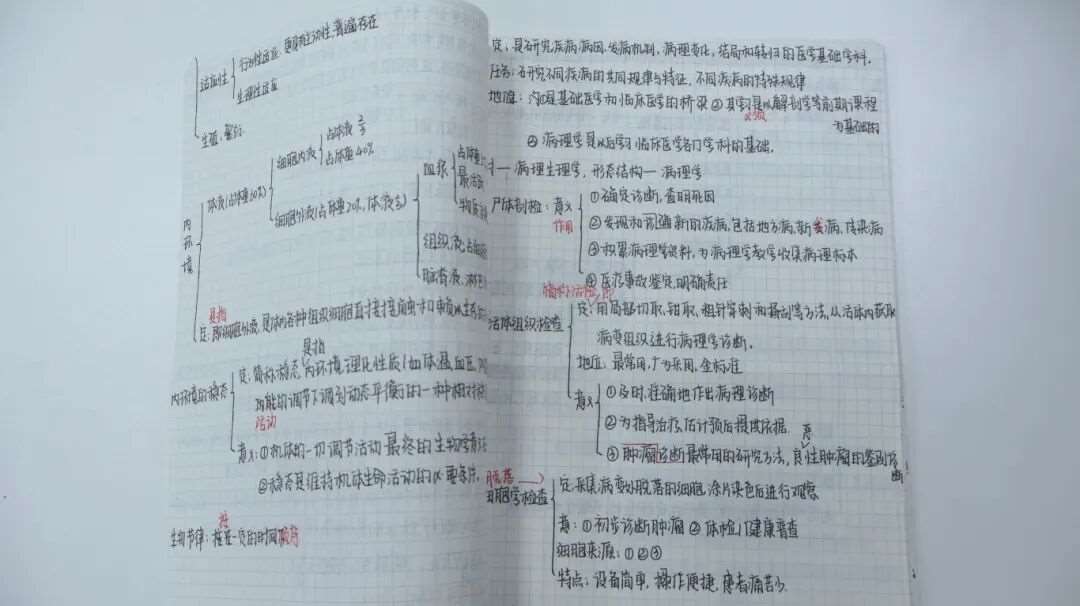 适应性
行为性适应 更具有主动性,普遍存在
生理性适应
生殖:繁衍
内环境
体液(占体重60%)
细胞内液
占体液 2/3
占体重40%
细胞外液(占体重20%,体液1/3)
血浆
占体重
最活跃
组织液:占
脑脊液、淋巴
是指
定:即细胞外液,是体内各种组织细胞直接接触和
是指
内环境的稳态
定:简称稳态,内环境理化性质(如体温、血压
功能的调节下达到动态平衡的一种相对
活动
意义:①机体的一切调节活动最终的生物学意义
②稳态是维持机体生命活动的必要条件,
生物节律:按一定的时间顺序
定:是研究疾病病因、发病机制、病理变化、结局和转归的医学基础学科.
任务:研究不同疾病的共同规律与特征,不同疾病的特殊规律
地位:①是基础医学和临床医学的桥梁 ②其学习是以解剖学等前期课程
必须
为基础的
③病理学是以后学习临床医学各门学科的基础.
病理生理学,形态结构—病理学
尸体剖检:意义
作用
①确定诊断,查明死因
②发现和确诊新的疾病,包括地方病,新发病,传染病
③积累病理学资料,为病理学教学收集病理标本
④医疗事故鉴定,明确责任
活体组织检查
定:用局部切取、钳取、粗针穿刺和搔刮等方法,从活体内获取
病变组织进行病理学诊断.
地位:最常用,广为采用,金标准
意义
①及时,准确地作出病理诊断
②为指导治疗,估计预后提供依据.
恶
③肿瘤诊断最常用的研究方法,良性肿瘤的鉴别诊断
脱落
细胞学检查
定:采集病变处脱落的细胞,涂片染色后进行观察
意:①初步诊断肿瘤 ②体检(健康普查
细胞来源:①②③
特点:设备简单,操作便捷,患者痛苦少.